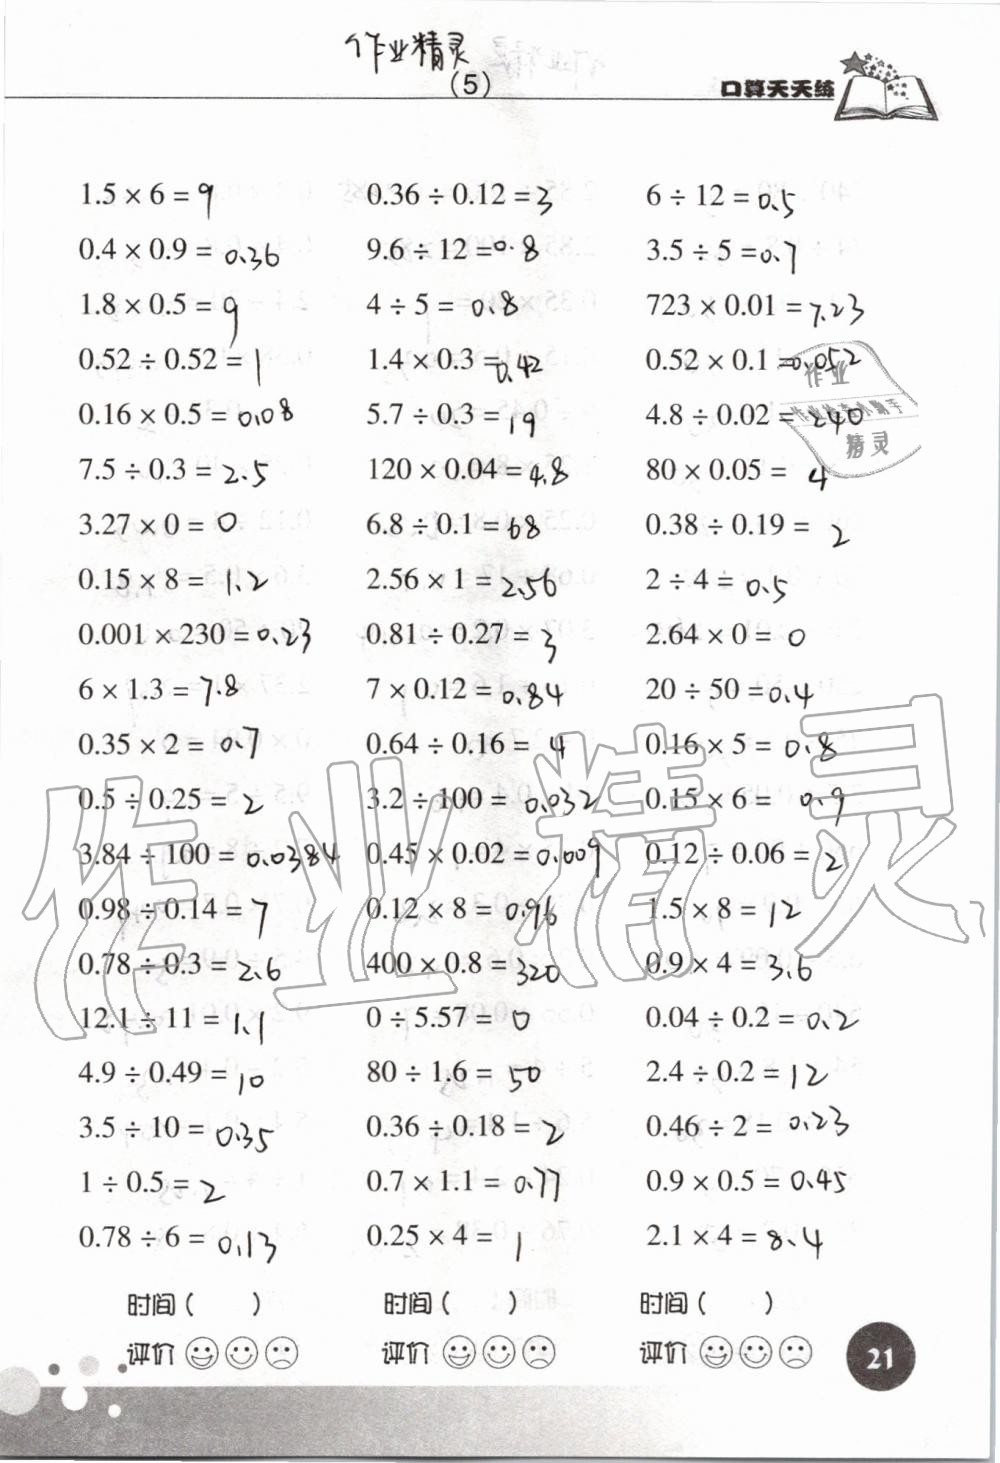 作业精灵
(5)
口算天天练
1.5 × 6 = 9 0.36 ÷ 0.12 = 3 6 ÷ 12 = 0.5
0.4 × 0.9 = 0.36 9.6 ÷ 12 = 0.8 3.5 ÷ 5 = 0.7
1.8 × 0.5 = 9 4 ÷ 5 = 0.8 723 × 0.01 = 7.23
0.52 ÷ 0.52 = 1 1.4 × 0.3 = 0.42 0.52 × 0.1 = 0.052
0.16 × 0.5 = 0.08 5.7 ÷ 0.3 = 19 4.8 ÷ 0.02 = 240
7.5 ÷ 0.3 = 2.5 120 × 0.04 = 4.8 80 × 0.05 = 4
3.27 × 0 = 0 6.8 ÷ 0.1 = 68 0.38 ÷ 0.19 = 2
0.15 × 8 = 1.2 2.56 × 1 = 2.56 2 ÷ 4 = 0.5
0.001 × 230 = 0.23 0.81 ÷ 0.27 = 3 2.64 × 0 = 0
6 × 1.3 = 7.8 7 × 0.12 = 0.84 20 ÷ 50 = 0.4
0.35 × 2 = 0.7 0.64 ÷ 0.16 = 4 0.16 × 5 = 0.8
0.5 ÷ 0.25 = 2 3.2 ÷ 100 = 0.032 0.15 × 6 = 0.9
3.84 ÷ 100 = 0.0384 0.45 × 0.02 = 0.009 0.12 ÷ 0.06 = 2
0.98 ÷ 0.14 = 7 0.12 × 8 = 0.96 1.5 × 8 = 12
0.78 ÷ 0.3 = 2.6 400 × 0.8 = 320 0.9 × 4 = 3.6
12.1 ÷ 11 = 1.1 0 ÷ 5.57 = 0 0.04 ÷ 0.2 = 0.2
4.9 ÷ 0.49 = 10 80 ÷ 1.6 = 50 2.4 ÷ 0.2 = 12
3.5 ÷ 10 = 0.35 0.36 ÷ 0.18 = 2 0.46 ÷ 2 = 0.23
1 ÷ 0.5 = 2 0.7 × 1.1 = 0.77 0.9 × 0.5 = 0.45
0.78 ÷ 6 = 0.13 0.25 × 4 = 1 2.1 × 4 = 8.4
时间 ( ) 时间 ( ) 时间 ( )
评价 评价 评价
21
作业
精灵
作业精灵